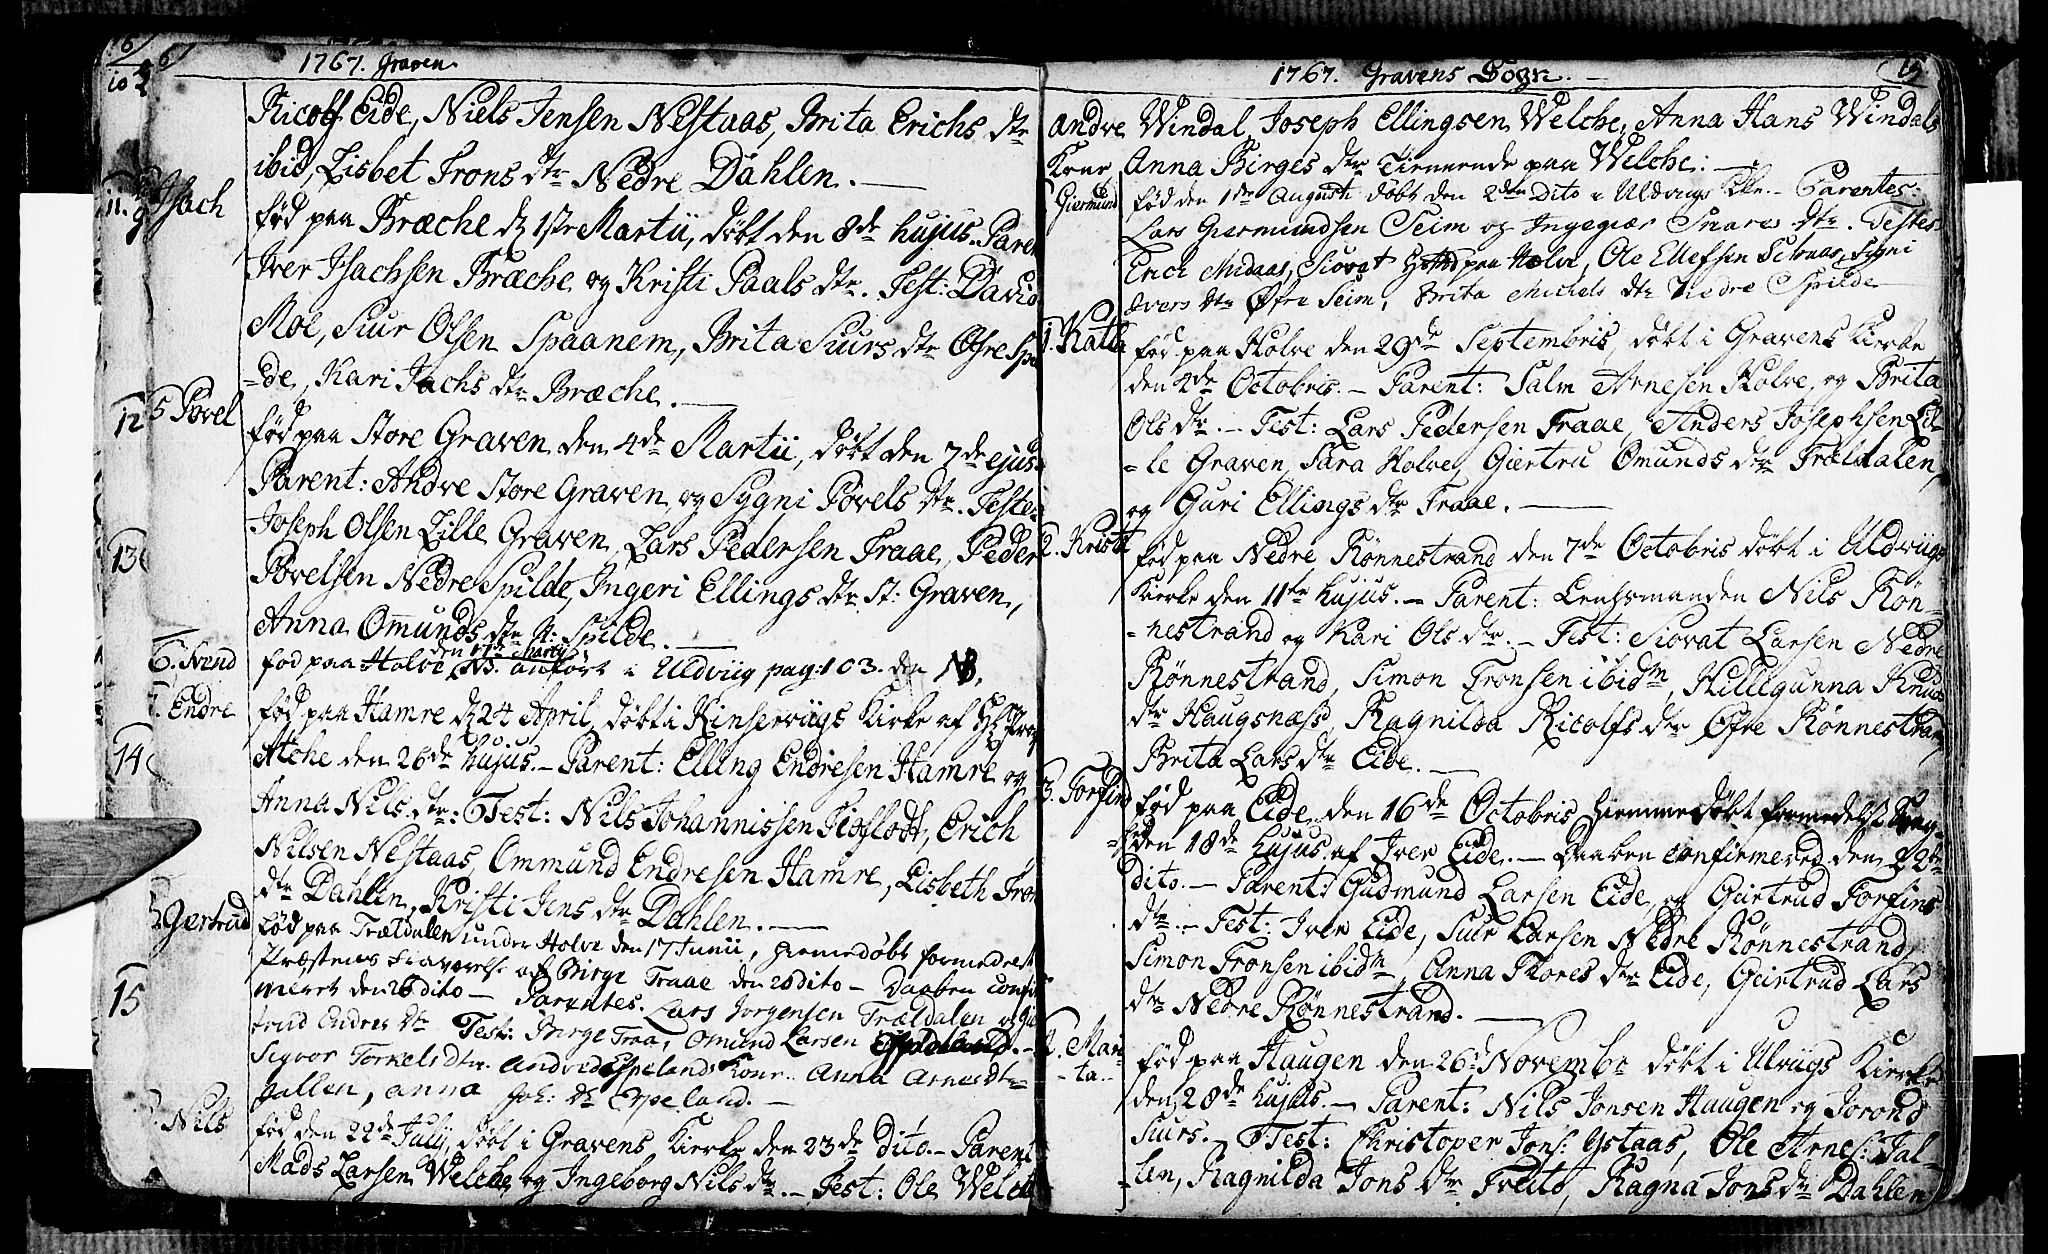 1767. Graven.
Ricolf Eide, Niels Jensen Nestaas, Brita Erichs dtr
ibid, Lisbet Trons dtr Nedre Dahlen.
11. Isach
fød paa Bræche d 1ste Martii, døbt den 8de hujus. Paren
Iver Isachsen Bræche og Kristi Paals dtr. Test: David
Moe, Siur Olsen Spaanem, Brita Siurs dtr Øfre Spil
=de, Kari Isachs dtr Bræche.
12 5 Povel
fød paa Store Graven den 4de Martii, døbt den 7de ejus
Parent: Andve Store Graven og Sygni Povels dtr. Teste:
Joseph Olsen Lille Graven, Lars Pedersen Traae, Peder
13
Povelsen Nedre Spilde, Ingeri Ellings dtr St: Graven,
Anna Omunds dtr N: Spilde.
6. Svend
den 17de Martij
fød paa Holve, NB. anført i Uldviig pag: 103. den NB.
7. Endre
fød paa Hamre d 24 April, døbt i Kinserviigs Kirke af Hr
14
Atche den 26de hujus. - Parent: Elling Endresen Hamre og
Anna Nils dtr: Test: Nils Johannissen Tioflodt, Erich
Nilsen Nestaas, Ommund Endresen Hamre, Lisbeth Tron
dtr Dahlen, Kristi Jens dtr Dahlen.
Gertrud
fød paa Trældalen under Holve den 17 Junii, hiemmedøbt formedelst
Præstens Fraværelse af Birge Traae den 20 dito - Daaben confir
meret den 26 dito - Parentes. Lars Jorgensen Trældalen og Gier
15
trud Endres dtr Test: Birge Traa, Omund Larsen Espeland. -
Sigvor Torkels dtr. Andved Espelands Kone. Anna Arnes dtr
Jallen, Anna Joh: dtr Espeland. -
Nils
fød den 22de July, døbt i Gravens Kierke den 23de Dito. - Parent
Mads Larsen Welche og Ingeborg Nils dtr. - Test: Ole Welche
1767. Gravens Sogn. -
15
Andre Windal, Joseph Ellingsen Welche, Anna Hans Windals
Kone Anna Birges dtr Tienende paa Welche.
Giermund
fød den 1de Augusti døbt den 2den Dito i Uldvigs Kke. - Parentes.
Lars Giermundsen Seim og Ingegier Snares dtr. Testes
Erich Midaas, Siovat paa Hælve, Ole Ellefsen Scaar, Signi
Svers dtr Øfre Seim, Brita Michels dtr Nedre Spilde
1. Katla
fød paa Holve den 29de Septembris, døbt i Gravens Kierke
den 4de Octobris. - Parent: Salm Arnesen Holve, og Brita
Ols dtr. - Test: Lars Pedersen Traae, Anders Josephsen Lil
=le Graven, Sara Holve, Giertru Omunds dtr Trældalen,
og Guri Ellings dtr Traae.
2. Kristi
fød paa Nedre Rønnestrand den 7de Octobris døbt i Uldviigs
Kierke den 11te hujus. - Parent: Lensmanden Nils Røn-
=nestrand og Kari Ols dtr. - Test: Siovat Larsen Nedre
Rønnestrand, Simon Tronsen ibidm, Hillegunna Knud
dtr Haugsnæss, Ragnilda Ricolfs dtr Øfre Rønnestrand
Brita Lars dtr Eide.
3. Torfind
fød paa Eide den 16de Octobris hiemmedøbt formedelst Svag-
=hed den 18de hujus af Iver Eide. - Daaben confirmered den 22de
dito. - Parent: Gudmund Larsen Eide og Giertrud Torfins
dtr. - Test: Iver Eide, Siur Larsen Nedre Rønnestrand,
Simon Tronsen ibidm, Anna Thores dtr Eide, Geirtrud Lars
dtr Nedre Rønnestrand.
4. Mar=
=ta.
fød paa Haugen den 26de Novembr døbt i Ulvigs Kierke
den 28de hujus. - Parent: Nils Jonsen Haugen og Jorond
Siurs. - Test: Christoper Jons: Ystaas, Ole Arnes: Jal-
=len, Ragnilda Jons dtr Freito, Ragna Jons dtr Dahlen